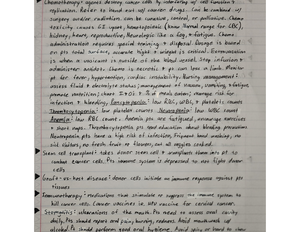 Chemotherapy: agents destroy cancer cells by interfering w/ cell function &
replication. Refer to hand out w/ cancer drugs. Can be combined w/
surgery and/or radiation, can be curative, control, or palliative. Chemo
toxicity causes GI upset, hematopoietic (know normal range for CBC),
kidney, heart, reproductive, Neurologic like ↓ cog, & fatigue. Chemo
administration requires special training, & disposal. Dosage is based
on pts total surface, accurate height & weight is critical. Extravasation
is when a vesicant is outside of the blood vessel. Stop infusion &
administer antidote. Chemo is necrotic & pt can lose a limb. Monitor
pt for fever, hypertension, cardiac instability. Nursing management:
assess fluid & electrolyte status, management of nausea, vomiting & fatigue,
promote nutrition, check I+Os, & % of meals eaten, manage risk for
infection & bleeding. Pancytopenia: low RBC, WBC, & platelet counts
Thrombocytopenia: low platelet counts. Neutropenia: low WBC count
Anemia: low RBC count. Anemia pts are fatigued, encourage exercise
& short naps. Thrombocytopenia pts need education about bleeding precautions
Neutropenia pts have a high risk of infection, frequent hand washing, no
sick visitors, no fresh fruits or flowers, and all visitors
Stem cell transplant: takes donor stem cell & transplants them into pt to
combat cancer cells. Pts immune system is depressed to not fight donor
cells
Graft-vs-host disease: donor cells initiate an immune response against pts
tissues
Immunotherapy: medications that stimulate or suppress the immune system to
kill cancer cells. Cancer vaccines ie HPV vaccine for cervical cancer.
Stomatitis: ulcerations of the mouth. Pts need to assess oral cavity
daily. Pts should report oral pain, burning, redness. Avoid mouthwash w/
alcohol. Pts should perform good oral hygiene. Avoid spicy or hard to chew